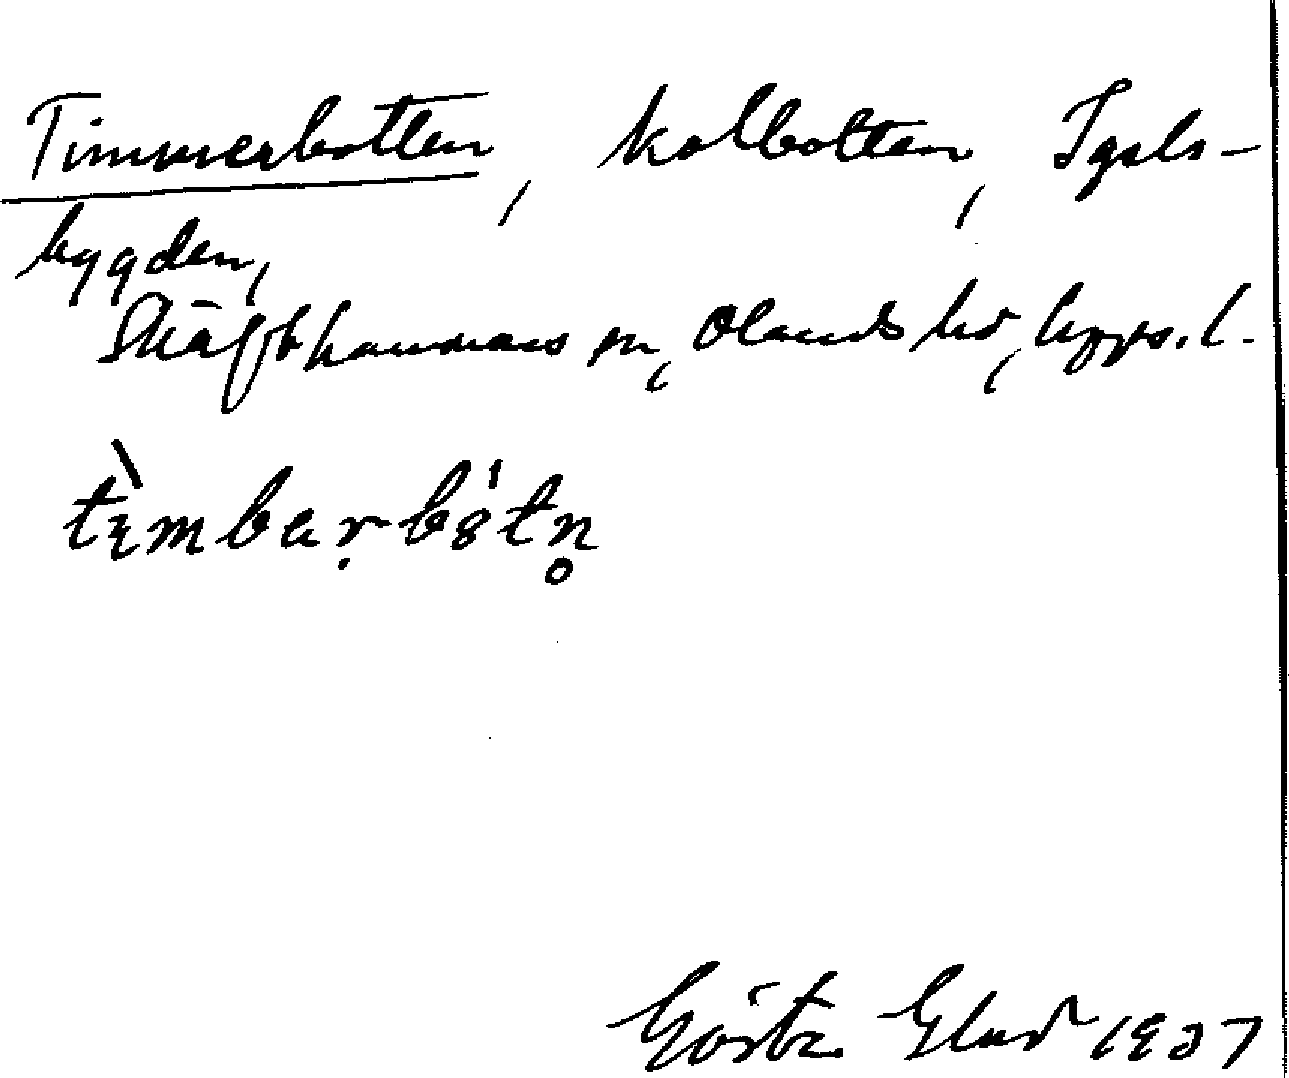 Timmerbotten, kolbotten, Igels-
bygden,
Skäfthammars sn, Olands hd, Upps. l.
tımbarbotn̥
Gösta Elud 1937